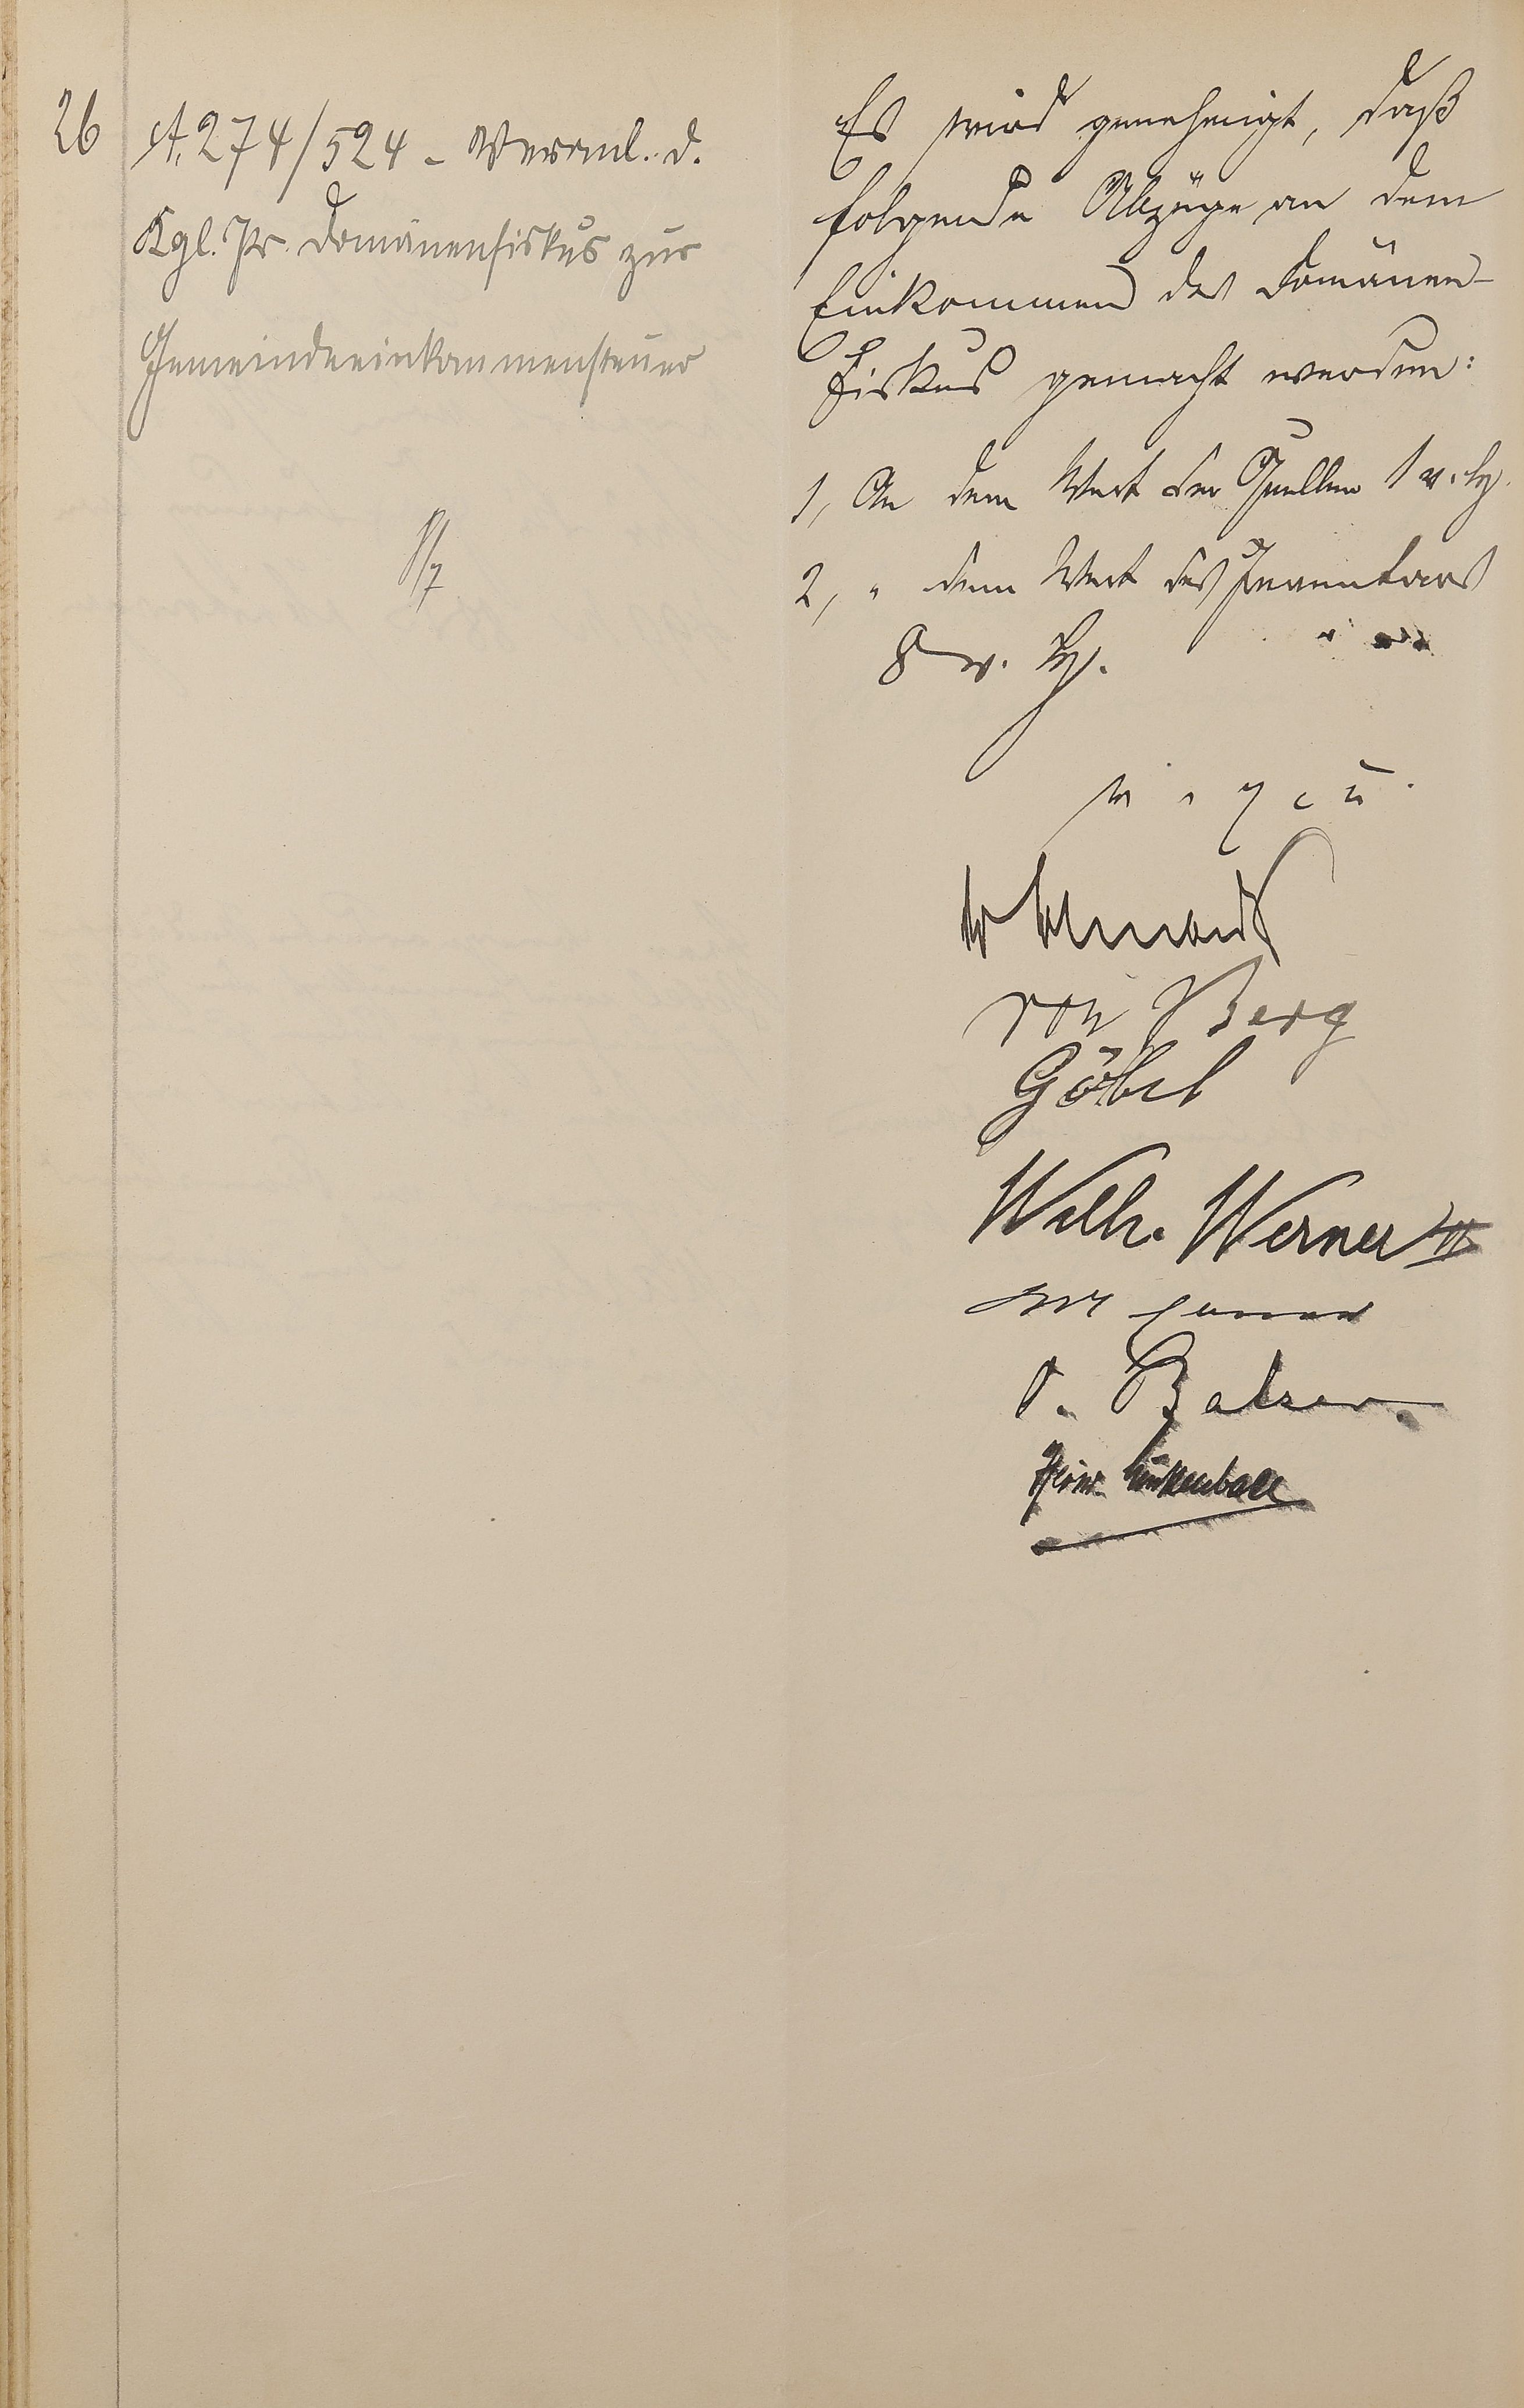 26
A. 274/524 - Veranl. d.
Kgl. Pr. Domänenfiskus zur
Gemeindeeinkommensteuer
Es wird genehmigt, daß
folgende Abzüge an dem
Einkommen des Domänen-
Fiskus gemacht werden:
1, An dem Wert der Quellen 1 v. H.
2, " dem Wert des Inventars
8 v. H.
v. g. u.
von Berg
Göbel
Wilh. Werner II
Balzer.
Heinr.